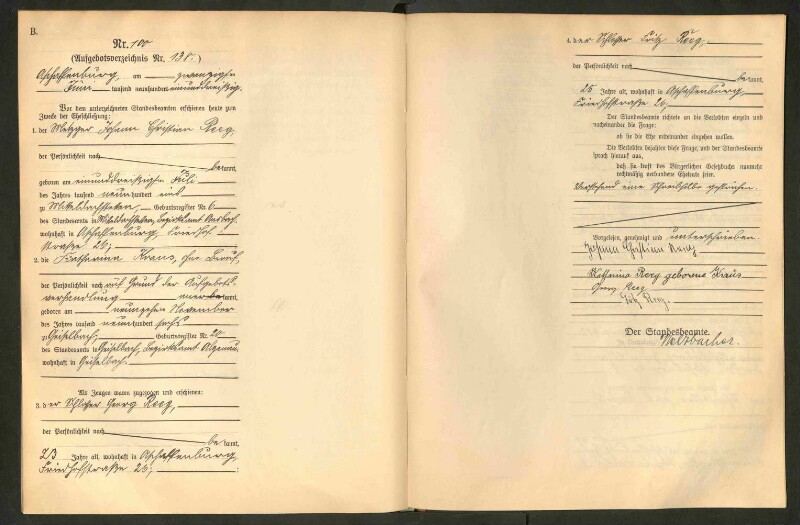 B.
Nr. 100
(Aufgebotsverzeichnis Nr. 130.)
Aschaffenburg, am zwanzigsten
Juni tausend neunhundert einunddreißig.
Vor dem unterzeichneten Standesbeamten erschienen heute zum
Zwecke der Eheschließung:
1. der Metzger Johann Christian Reeg
der Persönlichkeit nach
be kannt,
geboren am einunddreißigsten Juli
des Jahres tausend neunhundert eins
zu Mitteldachstetten, Geburtsregister Nr. 6
des Standesamts in Mitteldachstetten, Bezirksamt Ansbach,
wohnhaft in Aschaffenburg, Friedhof-
straße 26;
2. die Katharina Kraus, ohne Beruf,
der Persönlichkeit nach auf Grund der Aufgebots-
verhandlung anerkannt,
geboren am neunzehnten November
des Jahres tausend neunhundert sechs
zu Geiselbach, Geburtsregister Nr. 24
des Standesamts in Geiselbach, Bezirksamt Alzenau,
wohnhaft in Geiselbach.
Als Zeugen waren zugezogen und erschienen:
3. der Schlosser Georg Reeg,
der Persönlichkeit nach
be kannt,
23 Jahre alt, wohnhaft in Aschaffenburg,
Friedhofstraße 26;
4. der Schlosser Fritz Reeg,
der Persönlichkeit nach
be kannt,
25 Jahre alt, wohnhaft in Aschaffenburg,
Friedhofstraße 26;
Der Standesbeamte richtete an die Verlobten einzeln und
nacheinander die Frage:
ob sie die Ehe miteinander eingehen wollen.
Die Verlobten bejahten diese Frage, und der Standesbeamte
sprach hierauf aus,
daß sie kraft des Bürgerlichen Gesetzbuchs nunmehr
rechtmäßig verbundene Eheleute seien.
Vorstehend eine Schreibsilbe gestrichen.
Vorgelesen, genehmigt und unterschrieben.
Johann Christian Reeg
Katharina Reeg geborene Kraus
Georg Reeg
Fritz Reeg.
Der Standesbeamte.